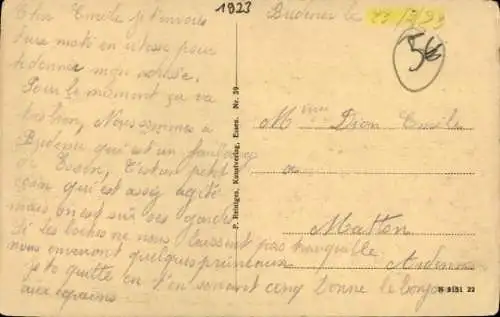 1823
Bredeney le 23/3/23
56
Cher Emile je t'envois
une mote en vitesse pour
te donner mon adresse.
Pour le moment ça va
très bien, Nous sommes à
Bredeney qui est un faubourg
de Essen, C'est un petit
coin qui est assez agité
mais on est sur ses gardes
Si les boches ne nous laissent pas tranquille
nous enverront quelques pruneaux
je te quitte en t'en serrant cinq Donne le bonjour
aux copains
P. Reintges, Kunstverlag, Essen. Nr. 39
M Dion Emile
a
Matton
Ardennes
N 8151 22